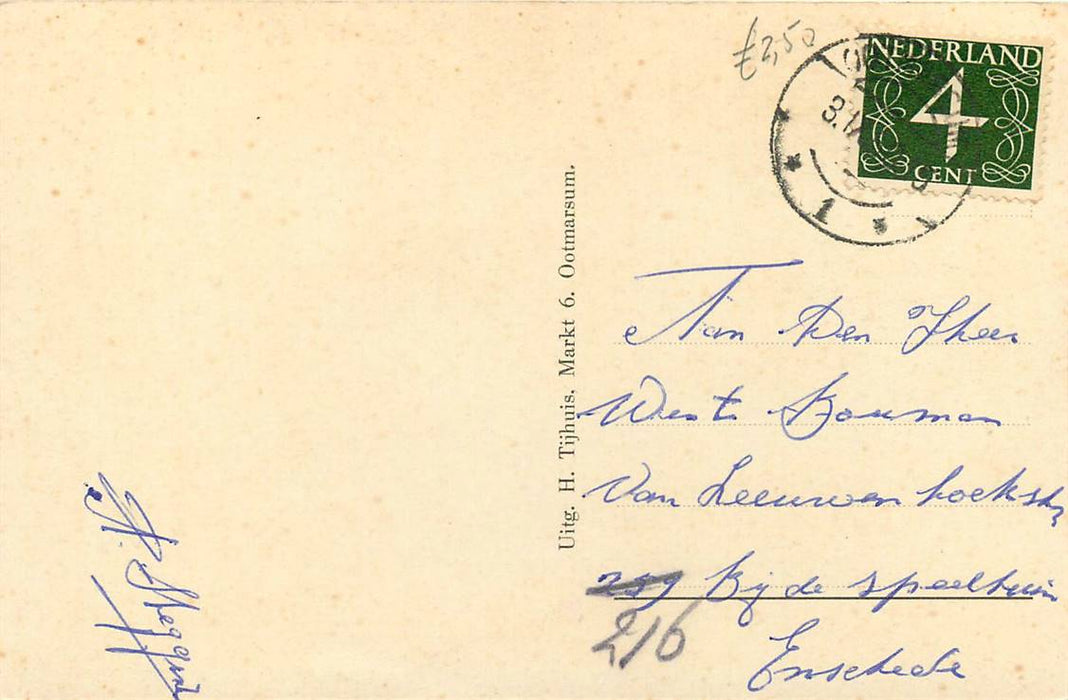 £2,50
NEDERLAND
4
CENT
1
Uitg. H. Tijhuis, Markt 6. Ootmarsum.
Aan Den Heer
Bouman
Van Leeuwenhoekstr
bij de speeltuin
216
Enschede
A.